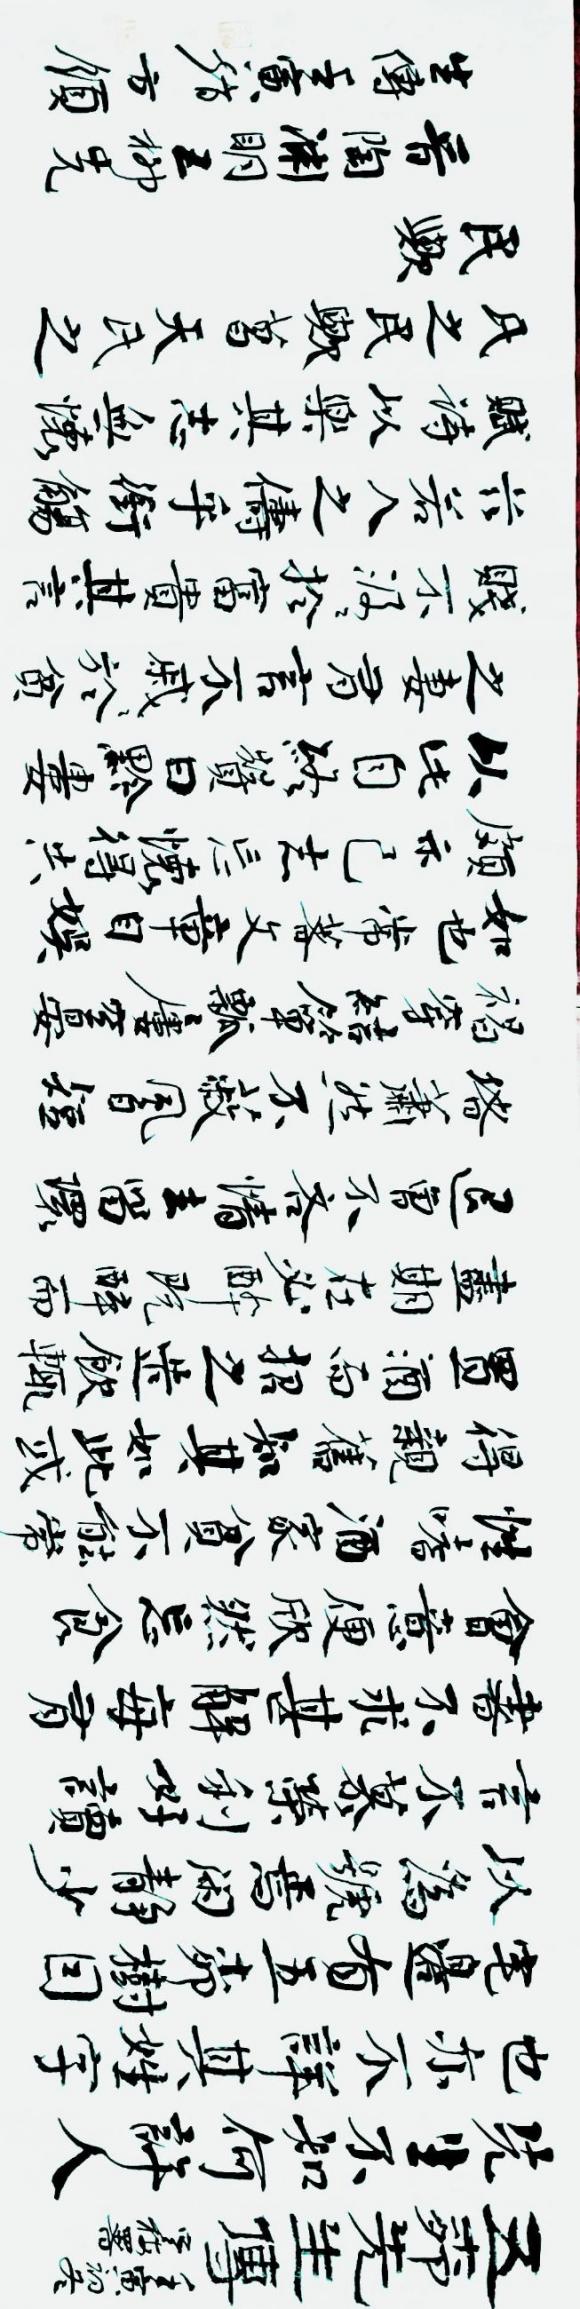 五柳先生傳
壬寅初冬
先生不知何許人
也亦不詳其姓字
宅邊有五柳樹因
以為號焉閑靜少
言不慕榮利好讀
書不求甚解每有
會意便欣然忘食
性嗜酒家貧不能常
得親舊知其如此或
置酒而招之造飲輒
盡期在必醉既醉而
退曾不吝情去留環
堵蕭然不蔽風日短
褐穿結簞瓢屢空晏
如也常著文章自娛
頗示己志忘懷得失
以此自終贊曰黔婁
之妻有言不戚〻於貧
賤不汲〻於富貴其言
茲若人之儔乎銜觴
賦詩以樂其志無懷
氏之民歟葛天氏之
民歟
晉陶淵明五柳先
生傳壬寅